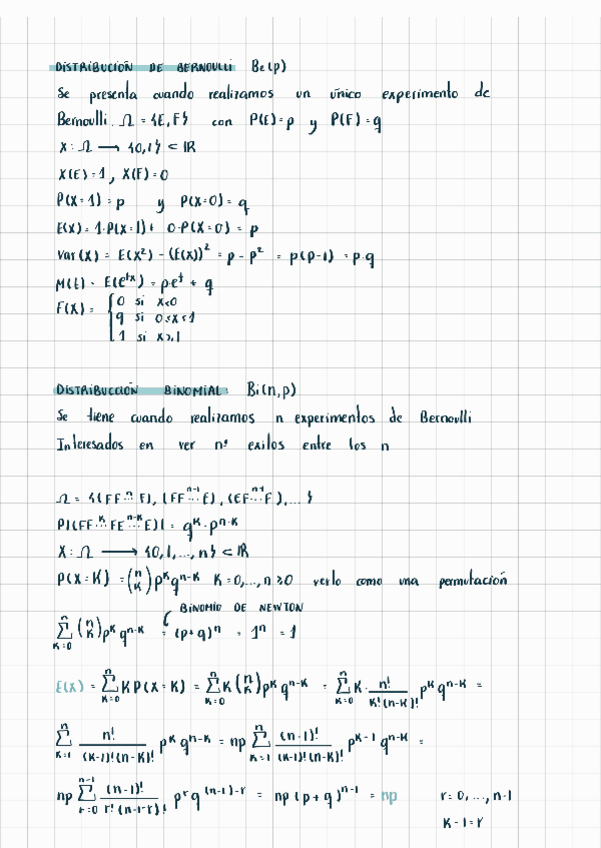 DISTRIBUCIÓN DE BERNOULLI Be(p)
Se presenta cuando realizamos un único experimento de
Bernoulli. Ω = {E, F} con P(E) = p y P(F) = q
X: Ω ⟶ {0,1} ⊂ ℝ
X(E) = 1, X(F) = 0
P(X=1) = p y P(X=0) = q
E(X) = 1·P(X=1) + 0·P(X=0) = p
Var(X) = E(X²) - (E(X))² = p - p² = p(p-1) = p·q
M(t) = E(e^{tx}) = p·e^t + q
F(X) = { 0 si x<0
q si 0≤x<1
1 si x≥1
DISTRIBUCIÓN BINOMIAL: Bi(n,p)
Se tiene cuando realizamos n experimentos de Bernoulli
Interesados en ver nº exitos entre los n
Ω = {(FF ⋯ⁿ F), (FF ⋯ⁿ⁻¹ E), (EF ⋯ⁿ⁻¹ F), ... }
P((FF ⋯ᴷ FE ⋯ⁿ⁻ᴷ E)) = q^K · p^{n-K}
X: Ω ⟶ {0,1,...,n} ⊂ ℝ
P(X=K) = (n K) p^K q^{n-K} K=0,...,n ≥0 verlo como una permutación
BINOMIO DE NEWTON
∑_{K=0}^{n} (n K) p^K q^{n-K} = (p+q)^n = 1^n = 1
E(X) = ∑_{K=0}^{n} K P(X=K) = ∑_{K=0}^{n} K (n K) p^K q^{n-K} = ∑_{K=0}^{n} K · n!/(K!(n-K)!) p^K q^{n-K} =
∑_{K=1}^{n} n!/((K-1)!(n-K)!) p^K q^{n-K} = np ∑_{K=1}^{n} (n-1)!/((K-1)!(n-K)!) p^{K-1} q^{n-K} =
np ∑_{r=0}^{n-1} (n-1)!/(r!(n-1-r)!) p^r q^{(n-1)-r} = np (p+q)^{n-1} = np r=0,...,n-1
K-1=r